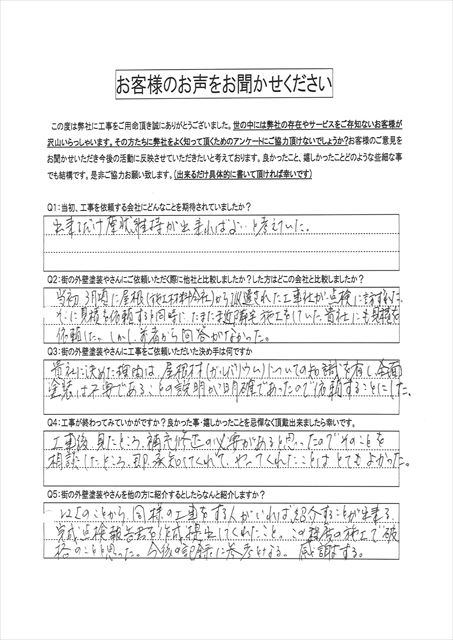 お客様のお声をお聞かせください
この度は弊社に工事をご用命頂き誠にありがとうございました。世の中には弊社の存在やサービスをご存知ないお客様が
沢山いらっしゃいます。その方たちに弊社をよく知って頂くためのアンケートにご協力頂けないでしょうか?お客様のご意見を
お聞かせいただき今後の活動に反映させていただきたいと考えております。良かったこと、嬉しかったことどのような些細な事
でも結構です。是非ご協力お願い致します。(出来るだけ具体的に書いて頂ければ幸いです)
Q1:当初、工事を依頼する会社にどんなことを期待されていましたか?
出来るだけ屋根維持が出来ればよいと考えていた。
Q2:街の外壁塗装やさんにご依頼いただく際に他社と比較しましたか?した方はどこの会社と比較しましたか?
当初3月頃に屋根(材料会社)から派遣された工事社が点検に訪ずれた。
そこに見積を依頼すると同時に、たまたま近隣を施工をしていた貴社にも見積を
依頼した。しかし、前者から回答がなかった。
Q3:街の外壁塗装やさんに工事をご依頼いただいた決め手は何ですか
貴社に決めた理由は、屋根材(ガルバリウム)についての知識を有し、全面
塗装は不要であることの説明が明確であったので依頼することにした。
Q4:工事が終わってみていかがですか?良かった事・嬉しかったことを忌憚なく頂戴出来ましたら幸いです。
工事後、見たところ、補充修正の必要があると思ったのでそのことを
相談したところ、即、承知してくれて、やってくれたことはとてもよかった。
Q5:街の外壁塗装やさんを他の方に紹介するとしたらなんと紹介しますか?
以上のことから、同様の工事をする人がいれば紹介することが出来る。
完成点検報告書を作成提出してくれたこと。この程度の施工で破
格のことと思った。今後の記録に参考となる。感謝する。